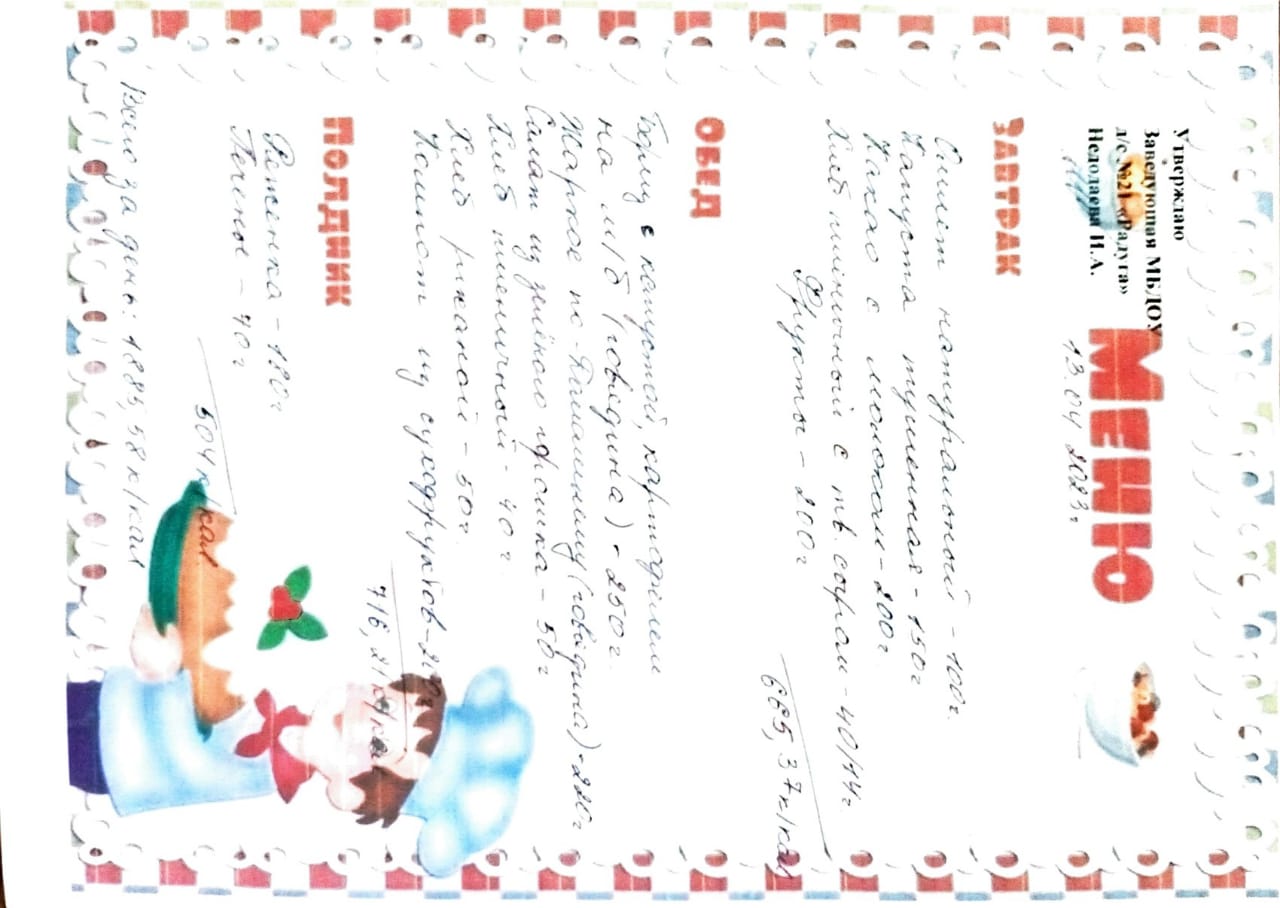 Утверждаю
Заведующая МБДОУ
д/с №21 «Радуга»
Недодаева И.А.
Меню
13.04.2023г
Завтрак
Омлет натуральный - 100г.
Капуста тушенная - 150г
Какао с молоком - 200г.
Хлеб пшеничный с тв. сыром - 40/14г
Фрукты - 200г
665,37к/кал
Обед
Борщ с капустой, картофелем
на м/б (говядина) - 250г.
Жаркое по-Домашнему (говядина) - 220г
Салат из зелёного горошка - 50г
Хлеб пшеничный - 40г.
Хлеб ржаной - 50г.
Компот из сухофруктов - 200г
716,21к/кал
Полдник
Ряженка - 180г
Печенье - 40г
504к/кал
Всего за день: 1885,58 к/кал